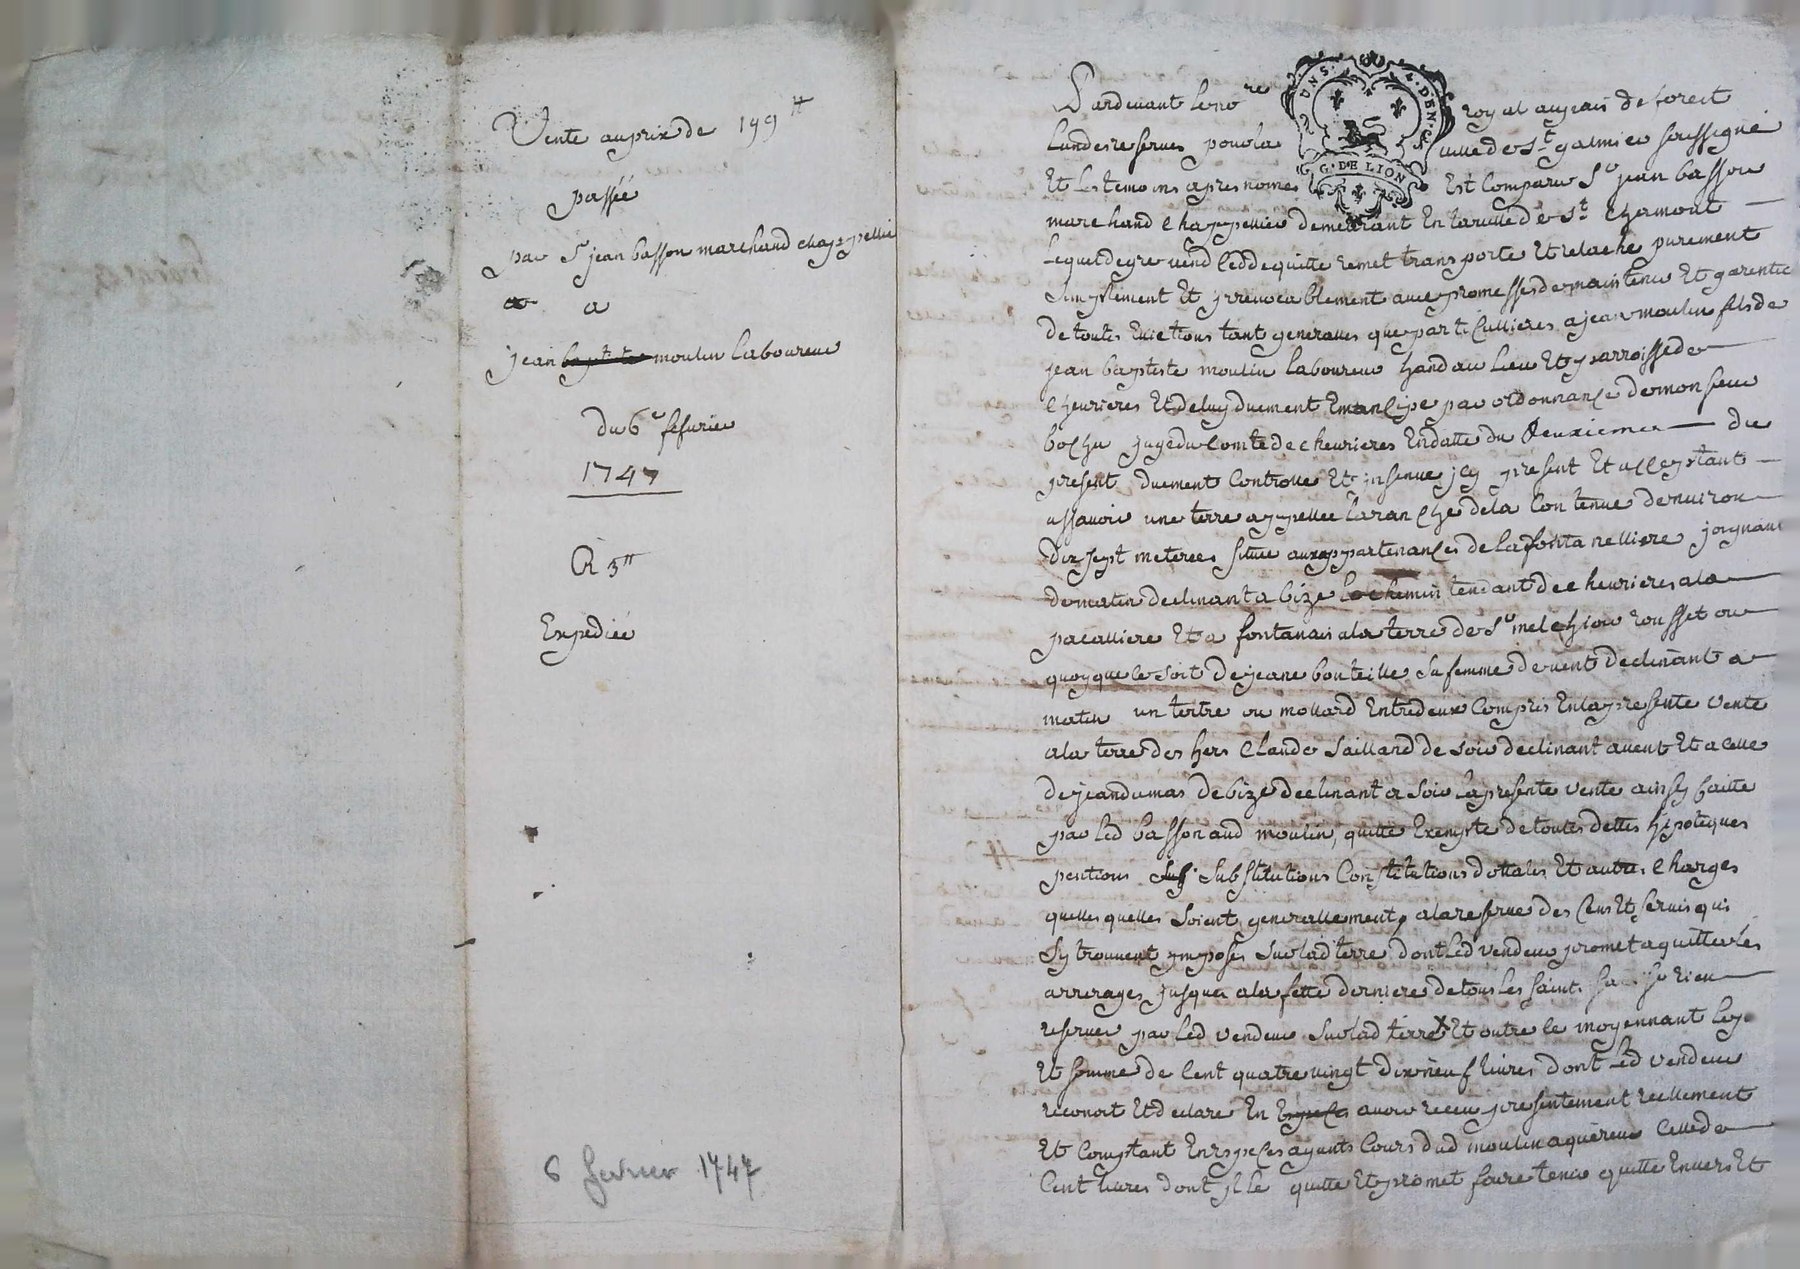 Vente au prix de 199 ₶
passéé
par Sr jean basson marchand chappellie
a
jean baptiste moulin laboureur
du 6e fesurier
1747
R 3 ₶
Expediéé
6 fevrier 1747
DEUX S. 4. DEN.
G. DE LION
Pardevant le nore royal au pais de forest
lundes reserves pour la ville de St galmier soussigné
Et les temoins apres nomes Est Comparu Sr jean basson
marchand chappellier demeurant En la ville de St chermont
lequel de gre vend cedde quitte remet transporte Et relache purement
simplement Et yrrevocablement avec promesses de maintenir Et garentir
de toutes Evictions tant generalles que particullieres a jean moulin fils de
jean baptiste moulin laboureur hand au lieu Et parroisse de
chevrieres Et de luy duement Emancipe par ordonnance de monsieur
bochu juge du Comte de chevrieres En datte du deuxieme du
present duement Controlle Et insinue jcy present Et acceptant
assavoir une terre appellee la ranche de la Contenue denviron
dix sept meterees situee aux appartenances de la fontanelliere joignant
de matin declinant a bize le chemin tendant de chevrieres a la
pacalliere Et a fontanais a la terre de Sr melchior rousset ou
quoy que ce soit de jeane bouteille sa femme de vent declinant a
matin un tertre ou mollard Entredeux Compris En la presente vente
a la terre des hers Claude saillard de soir declinant a vent Et a celle
de jean dumas de bize declinant a soir la presente vente ainsy faitte
par led basson aud moulin, quitte Exempte de toutes dettes hipoteques
pentions sus substitutions Constitutions dottales Et autres Charges
quelles quelles soient generallement, a la reserve des Cens Et servis qui
sy trouvent ymposes sur lad terre dont led vendeur promet aquitter les
arrerages jusques a la fette derniere de tous les saints sans se rien
reserver par led vendeur sur lad terre X Et outre le moyennant le prix
Et somme de Cent quatre vingt dix neuf livres dont led vendeur
reconoit Et declare En Especes avoir receu presentement reellement
Et Comptant En Especes ayants Cours dud moulin aquereur Celle de
Cent livres dont jl le quitte Et promet faire tenir quitte Envers Et